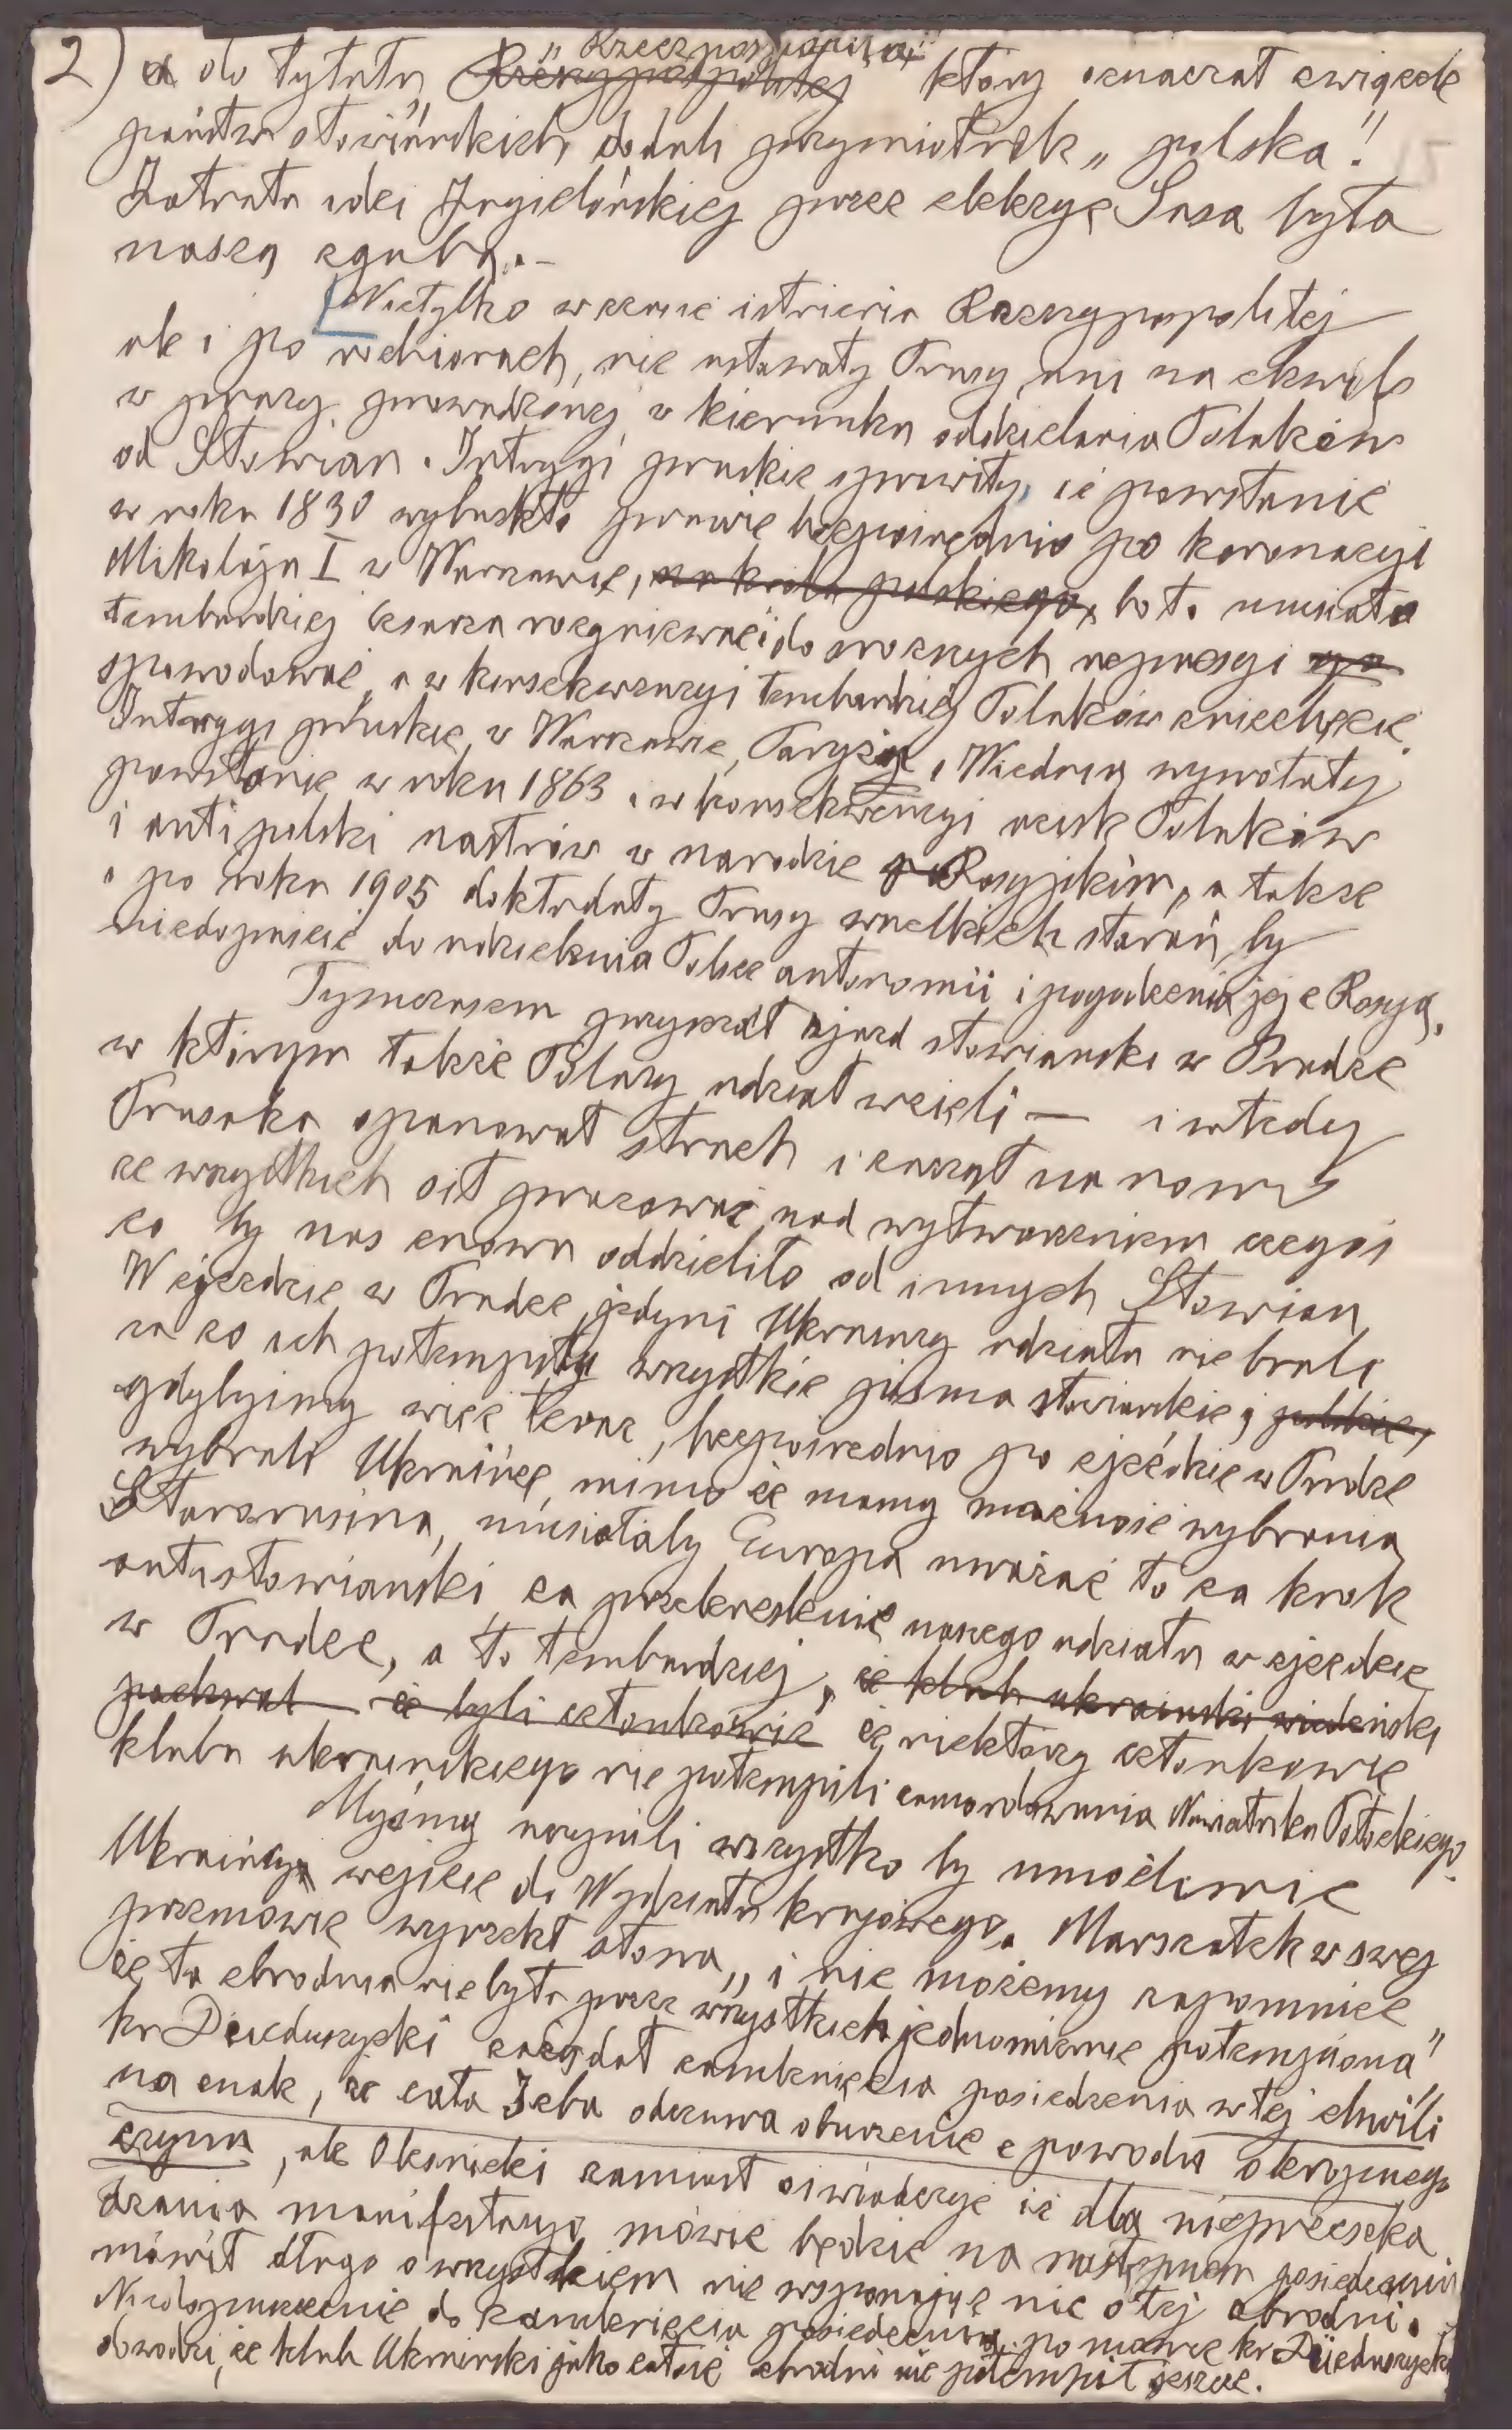 2) a do tytułu „Rzeczpospolita" ~~Rzeczypospolitej~~ który oznaczał związek
państw słowiańskich, dodali przymiotnik „polska".
Zatrata idei Jagielońskiej przez elekcyę Sasa była
naszą zgubą. –
Nietylko w czasie istnienia Rzeczypospolitej
ale i po rozbiorach, nie ustawały Prusy ani na chwilę
w pracy prowadzonej w kierunku oddzielania Polaków
od Słowian. Intrygi pruskie sprawiły, że powstanie
w roku 1830 wybuchło prawie bezpośrednio po koronacyi
Mikołaja I w Warszawie, ~~na króla polskiego,~~ bo to musiało
tembardziej cesarza rozgniewać i do srogszych represyi
spowodować, a w konsekwencyi tembardziej Polaków zniechęcić.
Intrygi pruskie w Warszawie, Paryżu, Wiedniu wywołały
powstanie w roku 1863 i w konsekwencyi ucisk Polaków
i antipolski nastrój w narodzie Rosyjskim, a także
i po roku 1905 dokładały Prusy wszelkich starań, by
niedopuścić do udzielenia Polsce autonomii i pogodzenia jej z Rosyą.
Tymczasem przyszedł zjazd słowianski w Pradze
w którym także Polacy udział wzięli — i wtedy
Prusaka opanował strach i zaczął na nowo
ze wszystkich sił pracować nad wytworzeniem czegoś
co by nas znowu oddzieliło od innych Słowian
W zjeździe w Pradze jedyni Ukraincy udziału nie brali
za co ich potempiły wszystkie pisma słowianskie, ~~polskie,~~
gdybyśmy więc teraz, bezpośrednio po zjeździe w Pradze
wybrali Ukraińca, mimo że mamy możność wybrania
Starorusina, musiałaby Europa uważać to za krok
antysłowianski za przekreslenie naszego udziału w zjeździe
w Pradze, a to tembardziej, ~~że klub ukrainski wiedeński~~
~~pochwal że byli członkowie~~ że niektórzy członkowie
klubu ukrainskiego nie potempili zamordowania Namiestnika Potockiego.
Myśmy uczynili wszystko by umożliwić
Ukraińcą wejście do Wydziału krajowego. Marszałek w swej
przemowie wyrzekł słowa „i nie możemy zapomnieć
że ta zbrodnia nie była przez wszystkich jednomiernie potempiona"
hr Dzieduszycki zażądał zamknięcia posiedzenia w tej chwili
na znak, że cała Izba odczuwa oburzenie z powodu okropnego
czynu, ale Oleśnicki zamiast oświadczyć że dla nieprzeszka
dzania manifestacyi mówić będzie na następnem posiedzeniu
mówił długo o wszystkiem nie wspominając nic o tej zbrodni.
Niedopuszczenie do zamknięcia posiedzenia po mowie hr Dzieduszyckiego
dowodzi, że klub Ukrainski jako całość zbrodni nie potempił jeszcze.